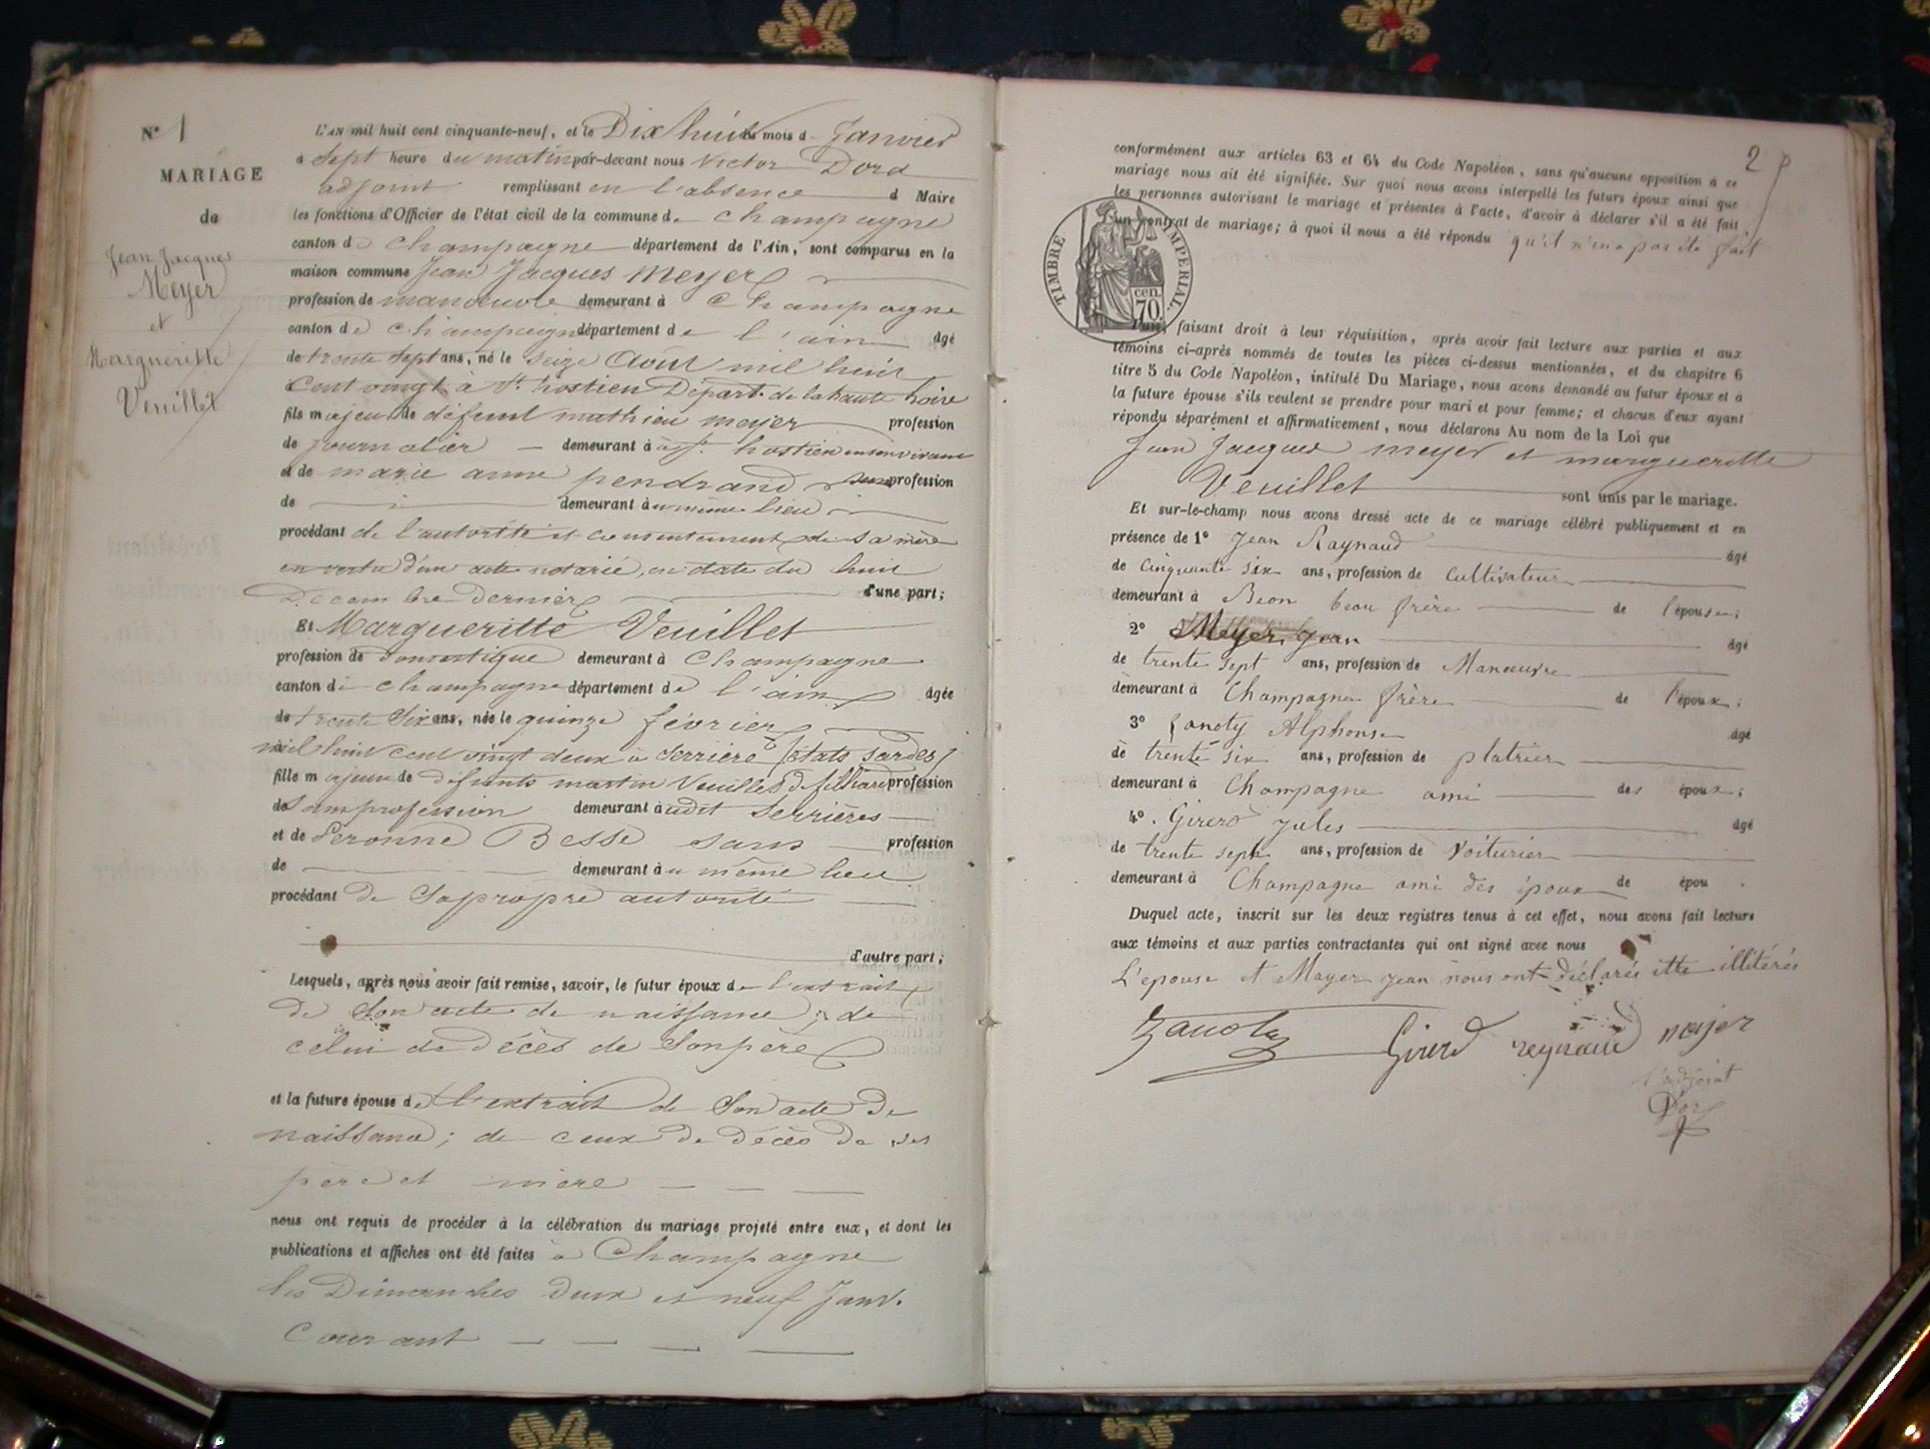 N° 1
MARIAGE
de
Jean Jacques
Meyer
et
Margueritte
Veuillet
L'AN mil huit cent cinquante-neuf, et le Dix huit du mois d Janvier
à Sept heure du matin par-devant nous Victor Dord
adjoint remplissant en l'absence d Maire
les fonctions d'Officier de l'état civil de la commune de Champagne
canton de Champagne département de l'Ain, sont comparus en la
maison commune Jean Jacques Meyer
profession de manoeuvre demeurant à Champagne
canton de Champagne département de l'ain âgé
de trente sept ans, né le seize Août mil huit
Cent vingt à St hostien Départ. de la haute Loire
fils majeur de défunt mathieu meyer profession
de journalier demeurant à St. hostien en son vivant
et de marie anne pendrand sans profession
de demeurant au même lieu
procédant de l'autorité et consentement de sa mère
en vertu d'un acte notarié, en date du huit
Décembre dernier d'une part;
Et Margueritte Veuillet
profession de domestique demeurant à Champagne
canton de Champagne département de l'ain âgée
de trente six ans, née le quinze février
mil huit cent vingt deux à Serrière (états sardes)
fille majeure de défunts martin Veuillet profession
de sans profession demeurant audit Serrières
et de Peronne Besse sans profession
de demeurant au même lieu
procédant de Sa propre autorité
d'autre part;
Lesquels, après nous avoir fait remise, savoir, le futur époux de l'extrait
de Son acte de naissance; de
celui de décès de Son père
et la future épouse de l'extrait de Son acte de
naissance; de ceux de décès de ses
père et mère
nous ont requis de procéder à la célébration du mariage projeté entre eux, et dont les
publications et affiches ont été faites à Champagne
les Dimanches deux et neuf Janv.
Courant
2
conformément aux articles 63 et 64 du Code Napoléon, sans qu'aucune opposition à ce
mariage nous ait été signifiée. Sur quoi nous avons interpellé les futurs époux ainsi que
les personnes autorisant le mariage et présentes à l'acte, d'avoir à déclarer s'il a été fait
un contrat de mariage; à quoi il nous a été répondu qu'il n'en a pas été fait
TIMBRE IMPERIAL.
70 cen.
faisant droit à leur réquisition, après avoir fait lecture aux parties et aux
témoins ci-après nommés de toutes les pièces ci-dessus mentionnées, et du chapitre 6
titre 5 du Code Napoléon, intitulé Du Mariage, nous avons demandé au futur époux et à
la future épouse s'ils veulent se prendre pour mari et pour femme; et chacun d'eux ayant
répondu séparément et affirmativement, nous déclarons Au nom de la Loi que
Jean Jacques meyer et margueritte
Veuillet sont unis par le mariage.
Et sur-le-champ nous avons dressé acte de ce mariage célébré publiquement et en
présence de 1° Jean Raynaud âgé
de Cinquante six ans, profession de Cultivateur
demeurant à Béon beau frère de l'épouse;
2° Meyer Jean âgé
de trente sept ans, profession de Manoeuvre
demeurant à Champagne frère de l'époux;
3° Zanoty Alphonse âgé
de trente six ans, profession de platrier
demeurant à Champagne ami des époux;
4° Girerd Jules âgé
de trente sept ans, profession de Voiturier
demeurant à Champagne ami des époux de épou .
Duquel acte, inscrit sur les deux registres tenus à cet effet, nous avons fait lecture
aux témoins et aux parties contractantes qui ont signé avec nous
L'epouse et Mayer jean nous ont déclarés être illitérés
Zanoty Girerd reynaud mejer
l'adjoint
Dord